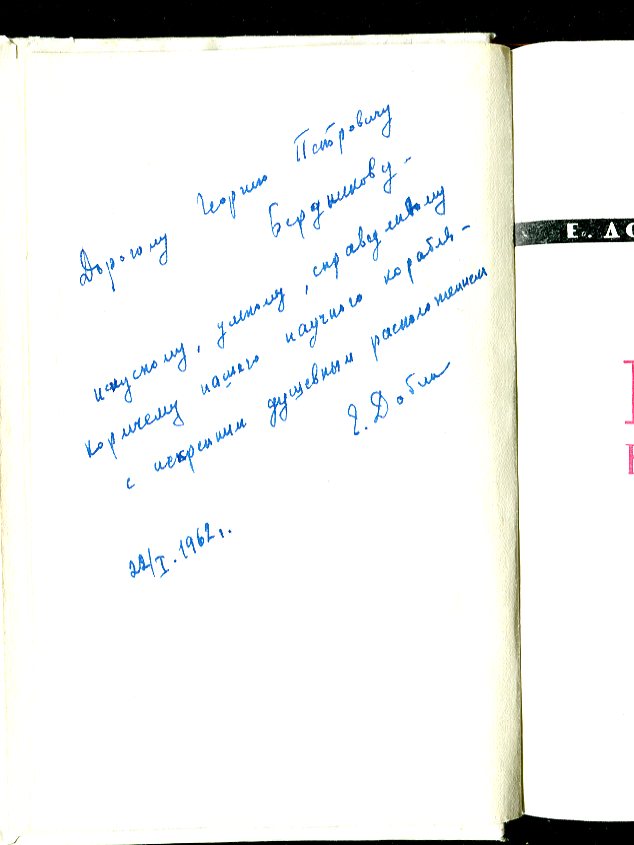 Дорогому Георгию Петровичу
Бердникову –
искусному, умному, справедливому
кормчему нашего научного корабля –
с искренним душевным расположением
Е. Добин
22/I. 1962 г.
Е. ДО